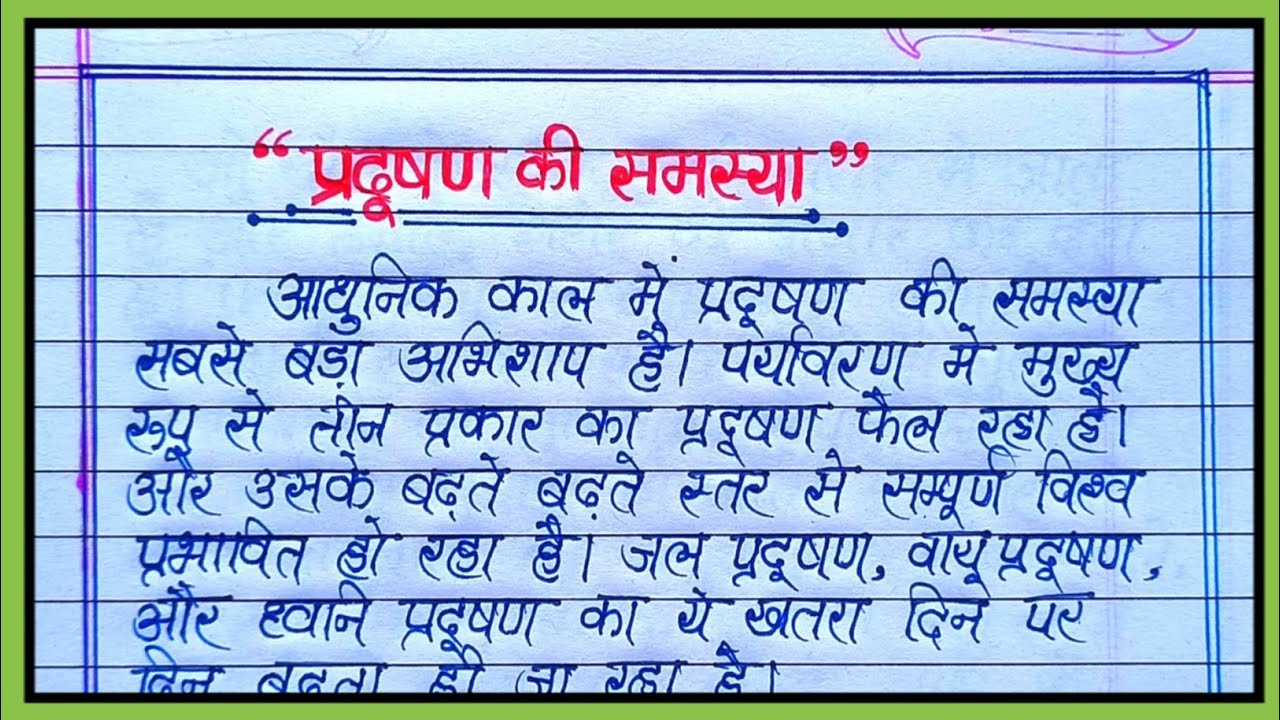 “प्रदूषण की समस्या”
आधुनिक काल में प्रदूषण की समस्या
सबसे बड़ा अभिशाप है। पर्यावरण मे मुख्य
रूप से तीन प्रकार का प्रदूषण फैल रहा है।
और उसके बढ़ते बढ़ते स्तर से सम्पूर्ण विश्व
प्रभावित हो रहा है। जल प्रदूषण, वायू प्रदूषण,
और ध्वनि प्रदूषण का ये खतरा दिन पर
दिन बढता ही जा रहा है।